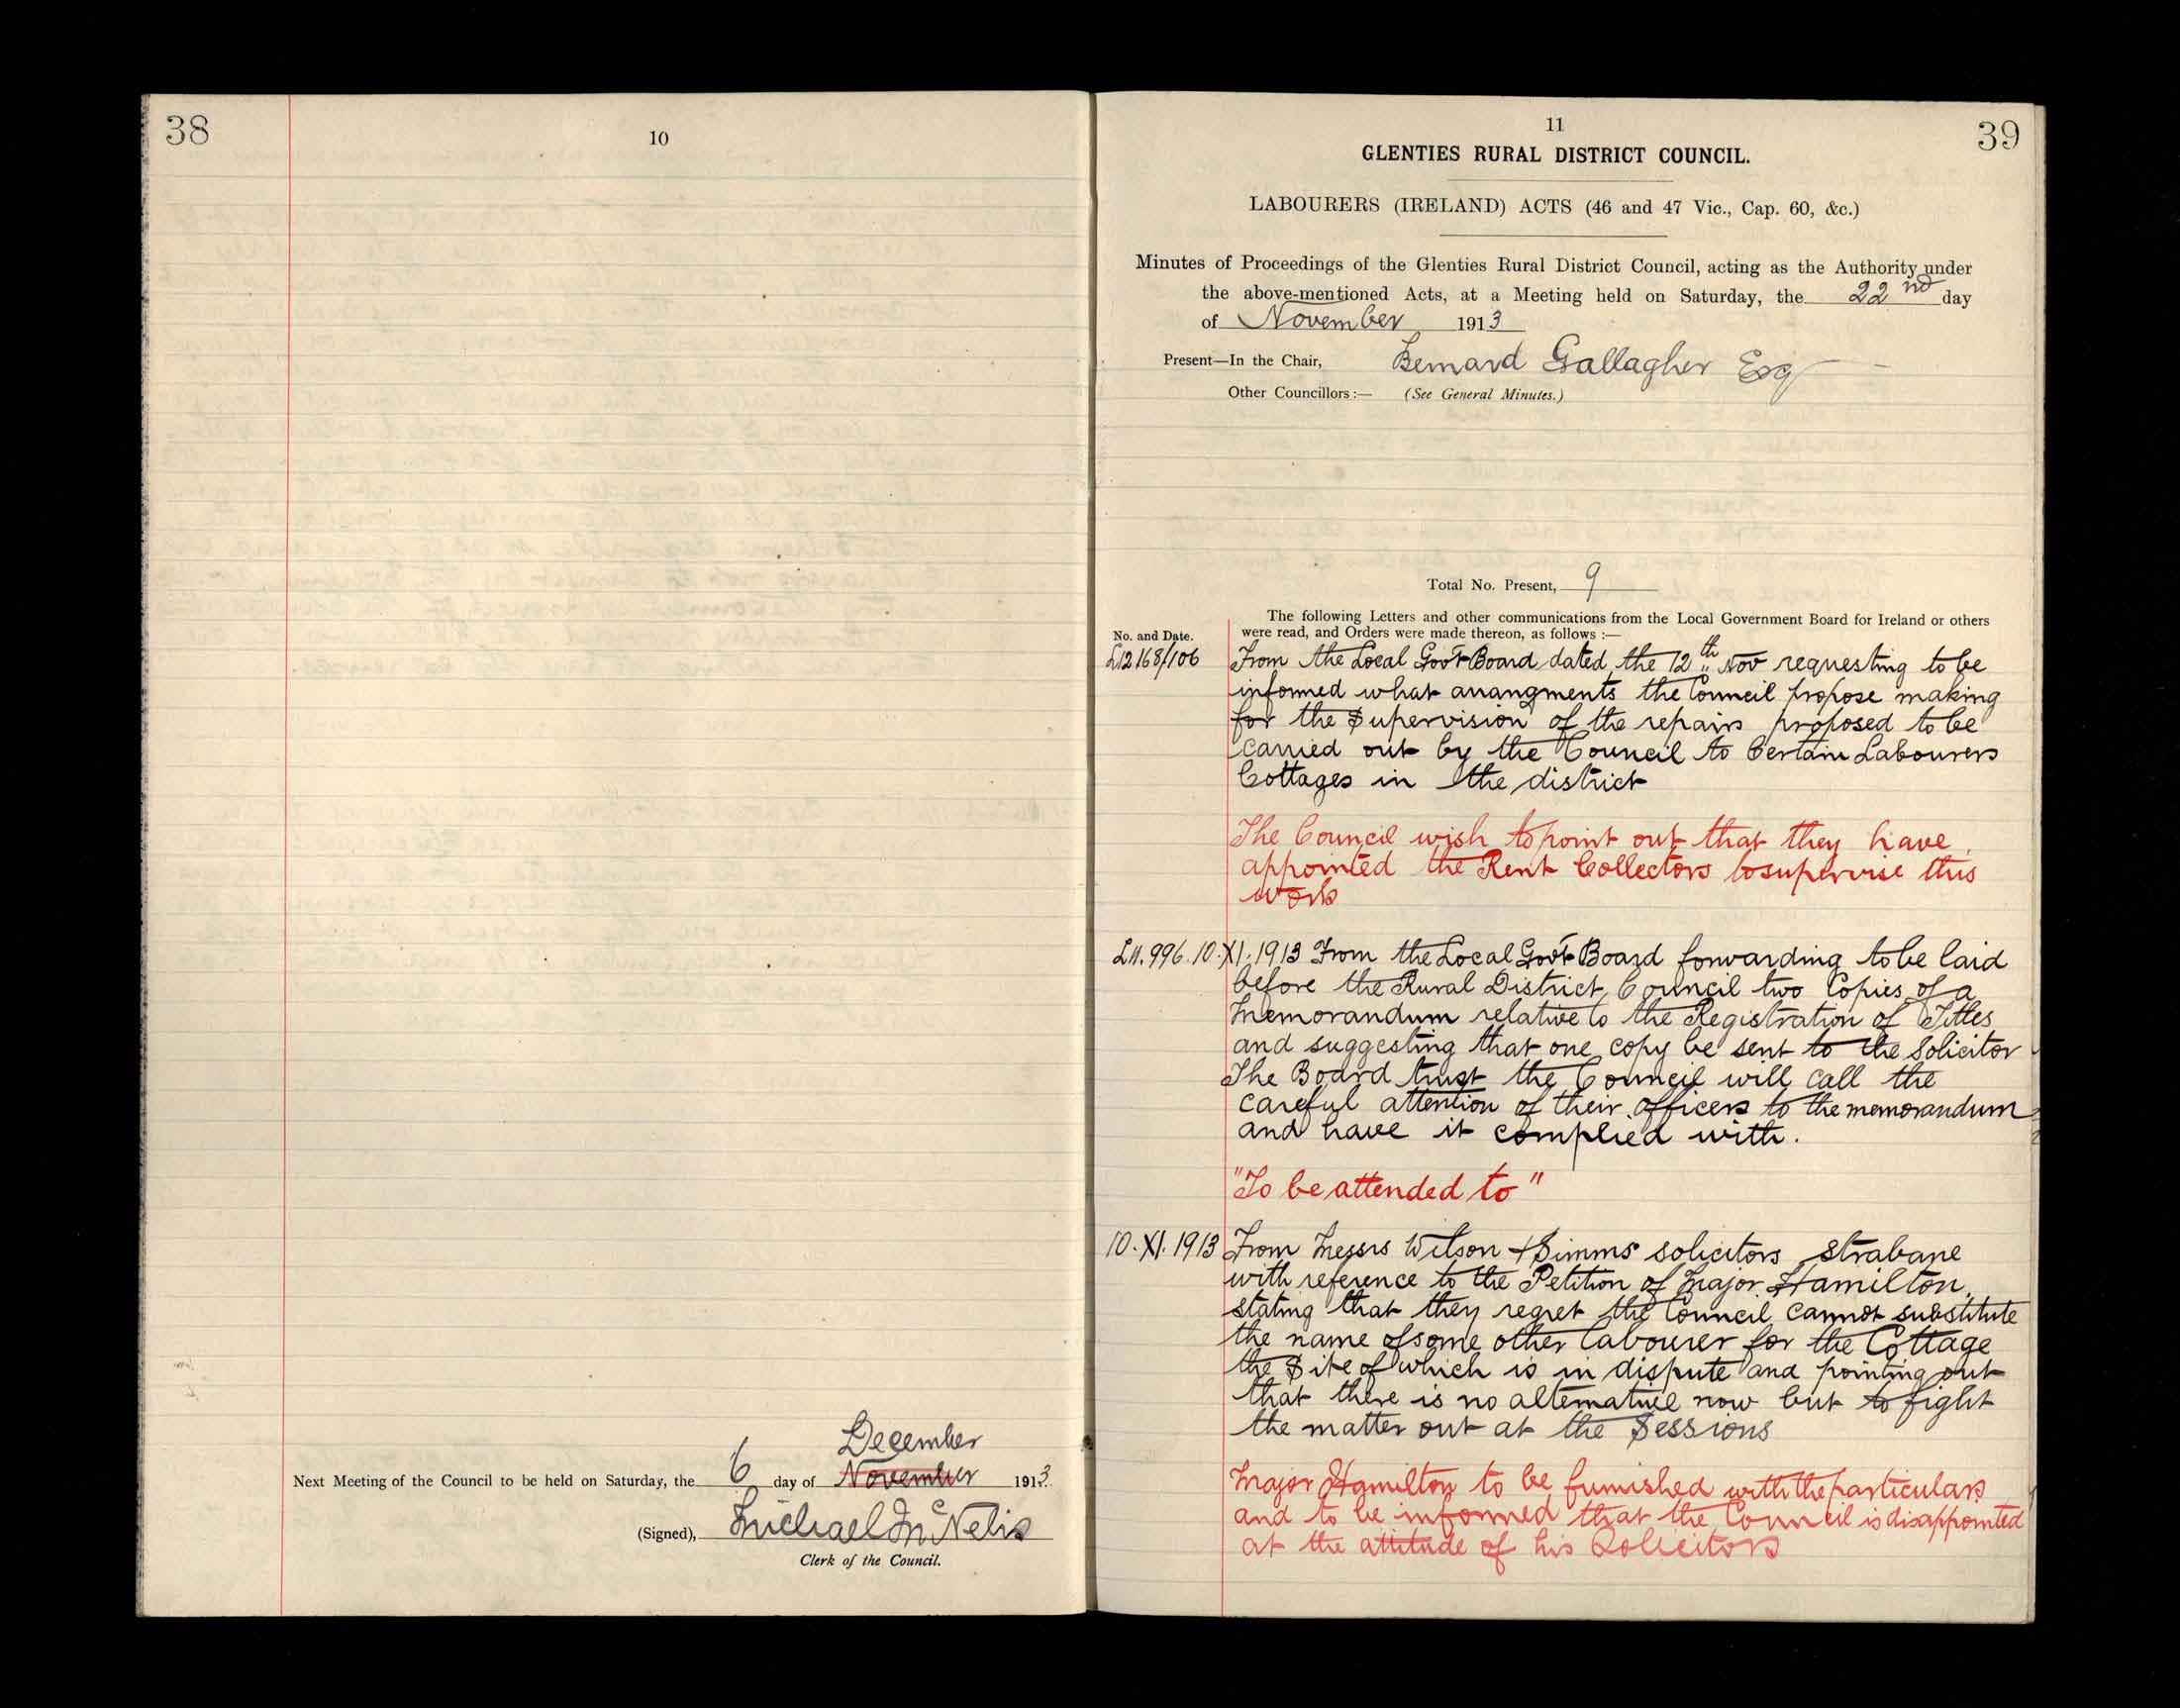 38
10
December
Next Meeting of the Council to be held on Saturday, the 6 day of November 1913.
(Signed), Michael McNelis
Clerk of the Council.
11
39
GLENTIES RURAL DISTRICT COUNCIL.
LABOURERS (IRELAND) ACTS (46 and 47 Vic., Cap. 60, &c.)
Minutes of Proceedings of the Glenties Rural District Council, acting as the Authority under
the above-mentioned Acts, at a Meeting held on Saturday, the 22nd day
of November 1913
Present—In the Chair, Bernard Gallagher Esq
Other Councillors:— (See General Minutes.)
Total No. Present, 9
The following Letters and other communications from the Local Government Board for Ireland or others
No. and Date. were read, and Orders were made thereon, as follows :—
L12168/106 From the Local Govt Board dated the 12th Nov requesting to be
informed what arrangments the Council propose making
for the Supervision of the repairs proposed to be
carried out by the Council to Certain Labourers
Cottages in the district
The Council wish to point out that they have
appointed the Rent Collectors to supervise this
work
L11.996.10.XI.1913 From the Local Govt Board forwarding to be laid
before the Rural District Council two Copies of a
Memorandum relative to the Registration of Titles
and suggesting that one copy be sent to the Solicitor
The Board trust the Council will call the
careful attention of their officers to the memorandum
and have it complied with.
"To be attended to"
10.XI.1913 From Messrs Wilson & Simms solicitors Strabane
with reference to the Petition of Major Hamilton,
stating that they regret the Council cannot substitute
the name of some other labourer for the Cottage
the Site of which is in dispute and pointing out
that there is no alternative now but to fight
the matter out at the Sessions
Major Hamilton to be furnished with the particulars
and to be informed that the Council is disappointed
at the attitude of his Solicitors